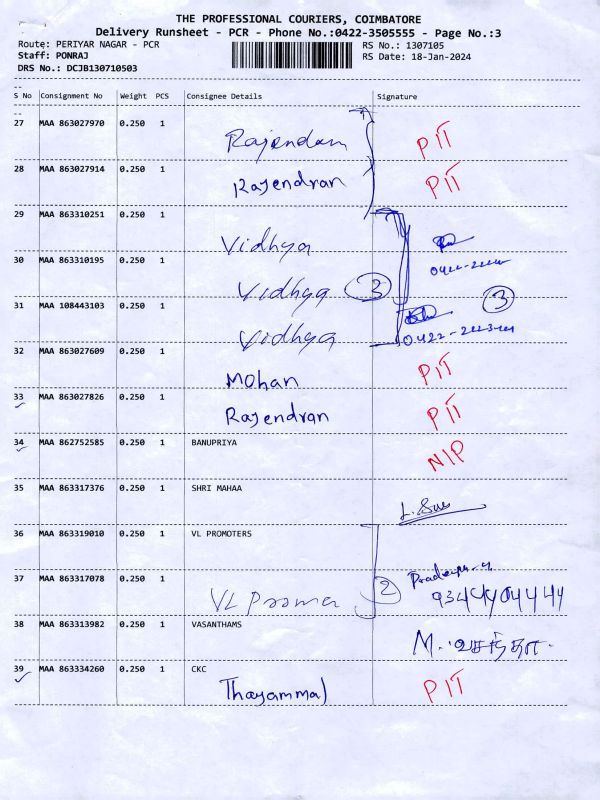 THE PROFESSIONAL COURIERS, COIMBATORE
Delivery Runsheet - PCR - Phone No.:0422-3505555 - Page No.:3
Route: PERIYAR NAGAR - PCR RS No.: 1307105
Staff: PONRAJ RS Date: 18-Jan-2024
DRS No.: DCJB130710503
S No Consignment No Weight PCS Consignee Details Signature
27 MAA 863027970 0.250 1
Rajendam PIT
28 MAA 863027914 0.250 1
Rajendran PIT
29 MAA 863310251 0.250 1
Vidhya
30 MAA 863310195 0.250 1
Vidhya 3 3
31 MAA 108443103 0.250 1
Vidhya
32 MAA 863027609 0.250 1
Mohan PIT
33 MAA 863027826 0.250 1
Rajendran PIT
34 MAA 862752585 0.250 1 BANUPRIYA NIP
35 MAA 863317376 0.250 1 SHRI MAHAA
36 MAA 863319010 0.250 1 VL PROMOTERS
37 MAA 863317078 0.250 1
VL Promer 2
38 MAA 863313982 0.250 1 VASANTHAMS
M. வசந்தா.
39 MAA 863334260 0.250 1 CKC
Thayammal PIT